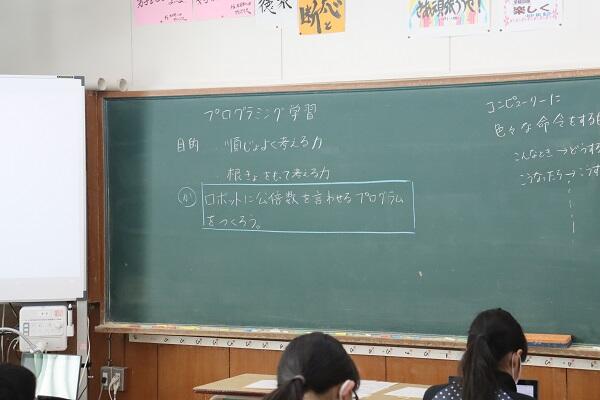 断心と
楽しく
プログラミング学習
目的 ・順じょよく考える力
・根きょをもって考える力
か ロボットに公倍数を言わせるプログラム
をつくろう。
コンピューターに
色々な命令をする
こんなとき→どうする
こうなったら→こうす